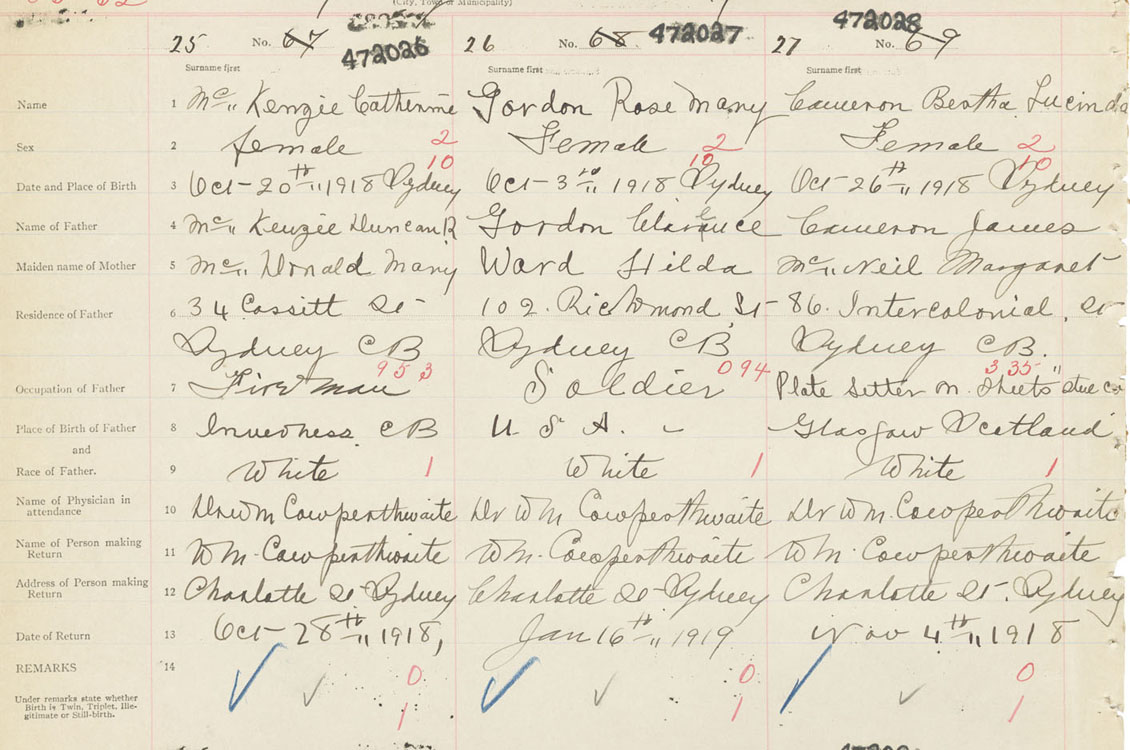 (City, Town or Municipality)
25 No. 67 472026 26 No. 68 472027 27 No. 69 472028
Surname first Surname first Surname first
Name 1 Mc,, Kenzie Catherine Gordon Rose Mary Cameron Bertha Lucinda
Sex 2 female 2 Female 2 Female 2
10 10 10
Date and Place of Birth 3 Oct - 20th,, 1918 Sydney Oct - 3rd,, 1918 Sydney Oct - 26th,, 1918 Sydney
Name of Father 4 Mc,, Kenzie Duncan R Gordon Clarence Cameron James
Maiden name of Mother 5 Mc,, Donald Mary Ward Hilda Mc,, Neil Margaret
Residence of Father 6 34 Cossitt St 102. Richmond St 86. Intercolonial. St
Sydney CB Sydney CB Sydney CB.
953 094 335
Occupation of Father 7 Fireman Soldier Plate Setter m. Sheets
Place of Birth of Father 8 Inverness CB U. S A. - Glasgow Scotland
and
Race of Father. 9 White 1 White 1 White 1
Name of Physician in attendance 10 Dr Wm Cowperthwaite Dr Wm Cowperthwaite Dr Wm. Cowperthwaite
Name of Person making Return 11 Wm. Cowperthwaite Wm. Cowperthwaite Wm. Cowperthwaite
Address of Person making Return 12 Charlotte St Sydney Charlotte St Sydney Charlotte St. Sydney
Date of Return 13 Oct - 28th,, 1918, Jan 16th,, 1919 Nov 4th,, 1918
REMARKS 14 0 0 0
Under remarks state whether
Birth is Twin, Triplet, Ille-
gitimate or Still-birth. 1 1 1